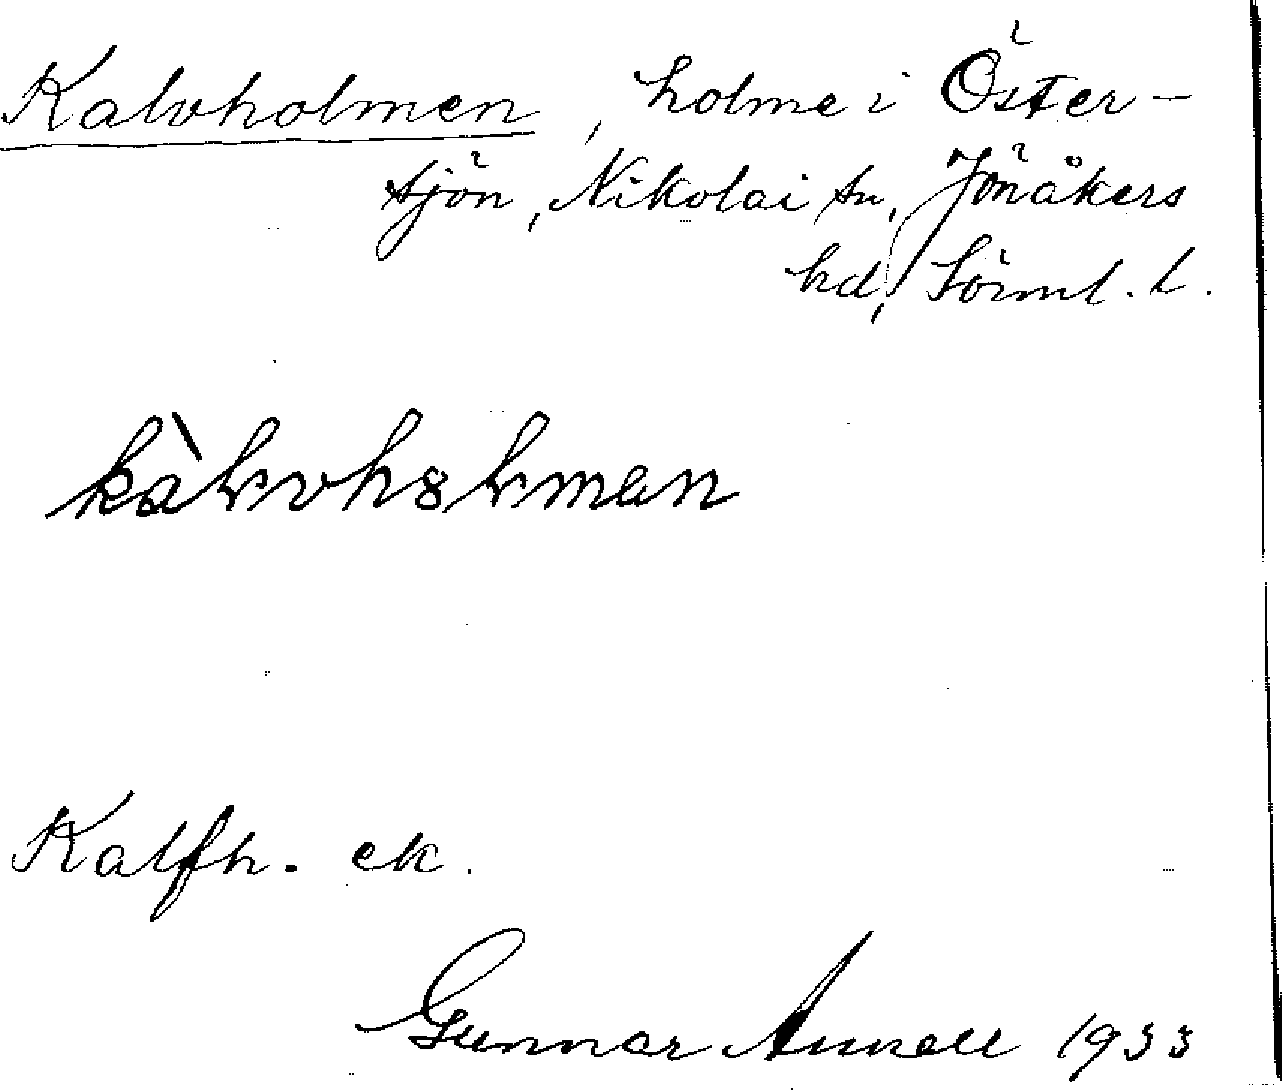 Kalvholmen, holme i Öster-
sjön, Nikolai sn, Jönåkers
hd, Sörml. l.
Kalfh. ek.
Gunnar Annell 1933